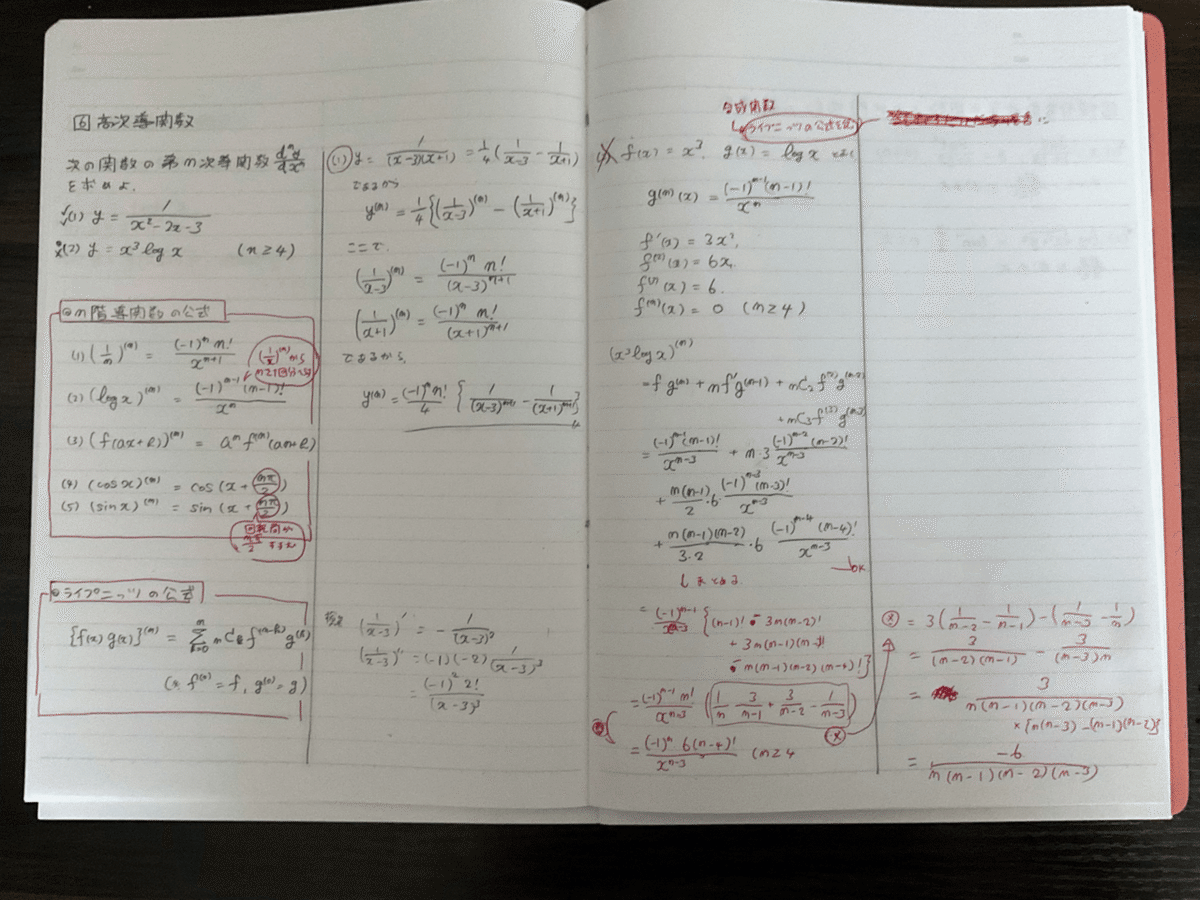 6 高次導関数
次の関数の第n次導関数 d^n y/dx^n
を求めよ.
(1) y = 1/(x²-2x-3)
(2) y = x³ log x (n≥4)
◎n階導関数の公式
(1) (1/n)^(n) = (-1)^n n!/x^(n+1)
(1/x)^(n) から
(2) (log x)^(n) = (-1)^(n-1) (n-1)!/x^n
(3) (f(ax+b))^(n) = a^n f^(n)(ax+b)
(4) (cos x)^(n) = cos(x + nπ/2)
(5) (sin x)^(n) = sin(x + nπ/2)
◎ライプニッツの公式
{f(x) g(x)}^(n) = Σ_{k=0}^{n} nCk f^(n-k) g^(k)
(※ f^(0) = f, g^(0) = g)
(1) y = 1/((x-3)(x+1)) = 1/4 (1/(x-3) - 1/(x+1))
であるから
y^(n) = 1/4 {(1/(x-3))^(n) - (1/(x+1))^(n)}
ここで.
(1/(x-3))^(n) = (-1)^n n!/(x-3)^(n+1)
(1/(x+1))^(n) = (-1)^n n!/(x+1)^(n+1)
であるから.
y^(n) = (-1)^n n!/4 {1/(x-3)^(n+1) - 1/(x+1)^(n+1)}
(1/(x-3))' = - 1/(x-3)²
(1/(x-3))'' = (-1)(-2) 1/(x-3)³
= (-1)² 2!/(x-3)³
合成関数
ライプニッツの公式
f(x) = x³, g(x) = log x
g^(n)(x) = (-1)^(n-1) (n-1)!/x^n
f'(x) = 3x²,
f^(2)(x) = 6x,
f^(3)(x) = 6.
f^(n)(x) = 0 (n≥4)
(x³ log x)^(n)
= f g^(n) + n f' g^(n-1) + nC2 f^(2) g^(n-2)
+ nC3 f^(3) g^(n-3)
= (-1)^(n-1) (n-1)!/x^(n-3) + n·3 (-1)^(n-2) (n-2)!/x^(n-3)
+ n(n-1)/2 ·6· (-1)^(n-3) (n-3)!/x^(n-3)
+ n(n-1)(n-2)/3·2 ·6 (-1)^(n-4) (n-4)!/x^(n-3)
OK
まとめる
= (-1)^(n-1)/x^(n-3) {(n-1)! - 3n(n-2)!
+ 3n(n-1)(n-3)!
- n(n-1)(n-2)(n-4)!}
= (-1)^(n-1) n!/x^(n-3) (1/n - 3/(n-1) + 3/(n-2) - 1/(n-3))
= (-1)^n 6(n-4)!/x^(n-3) (n≥4
※ = 3(1/(n-2) - 1/(n-1)) - (1/(n-3) - 1/n)
= 3/((n-2)(n-1)) - 3/((n-3)n)
= 3/(n(n-1)(n-2)(n-3))
× {n(n-3) - (n-1)(n-2)}
= -6/(n(n-1)(n-2)(n-3))